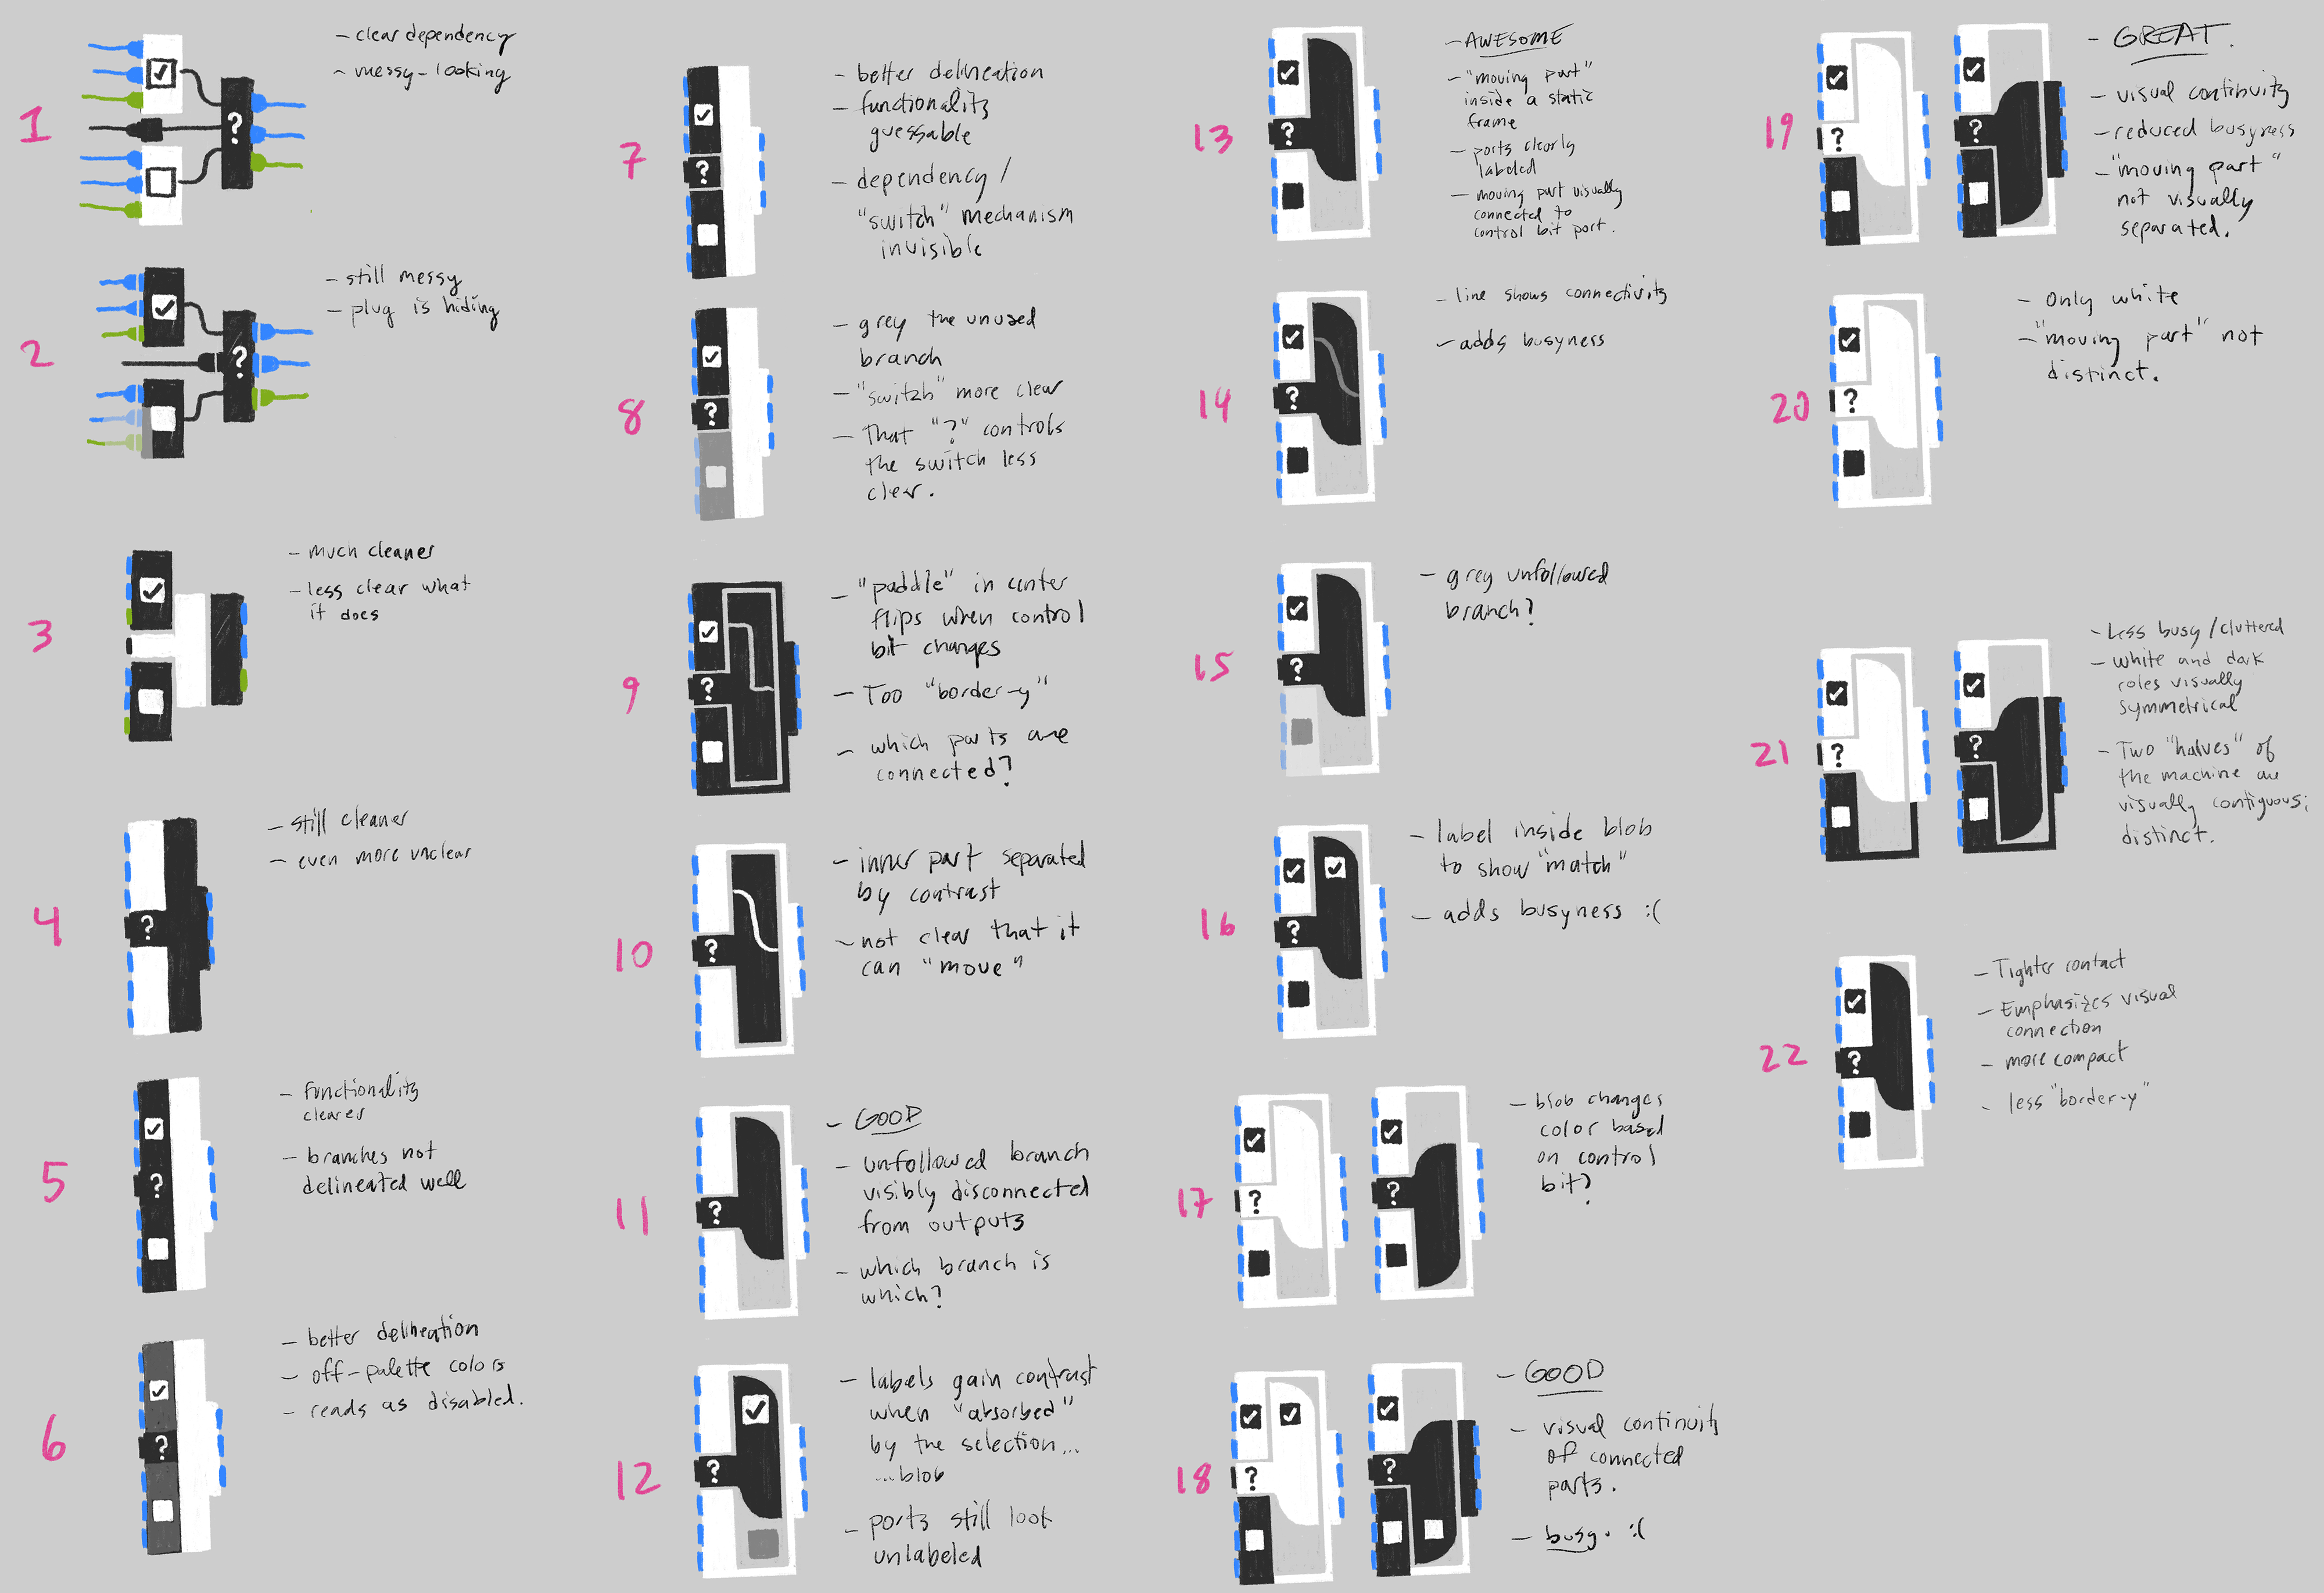 1
- clear dependency
- messy-looking
?
2
- still messy
- plug is hiding
?
3
- much cleaner
- less clear what
it does
4
- still cleaner
- even more unclear
?
5
- functionality
clearer
- branches not
delineated well
?
6
- better delineation
- off-palette colors
- reads as disabled.
?
7
- better delineation
- functionality
guessable
- dependency/
"switch" mechanism
invisible
?
8
- grey the unused
branch
- "switch" more clear
- That "?" controls
the switch less
clear.
?
9
- "paddle" in center
flips when control
bit changes
- Too "border-y"
- which parts are
connected?
?
10
- inner part separated
by contrast
- not clear that it
can "move"
?
11
- GOOD
- unfollowed branch
visibly disconnected
from outputs
- which branch is
which?
?
12
- labels gain contrast
when "absorbed"
by the selection...
...blob
- ports still look
unlabeled
?
13
- AWESOME
- "moving part"
inside a static
frame
- ports clearly
labeled
- moving part visually
connected to
control bit port.
?
14
- line shows connectivity
- adds busyness
?
15
- grey unfollowed
branch?
?
16
- label inside blob
to show "match"
- adds busyness :(
?
17
- blob changes
color based
on control
bit?
? ?
18
- GOOD
- visual continuity
of connected
parts.
- busy. :(
? ?
19
- GREAT.
- visual continuity
- reduced busyness
- "moving part"
not visually
separated.
? ?
20
- Only white
- "moving part" not
distinct.
?
21
- Less busy/cluttered
- white and dark
roles visually
symmetrical
- Two "halves" of
the machine are
visually contiguous;
distinct.
? ?
22
- Tighter contact
- Emphasizes visual
connection
- more compact
- less "border-y"
?